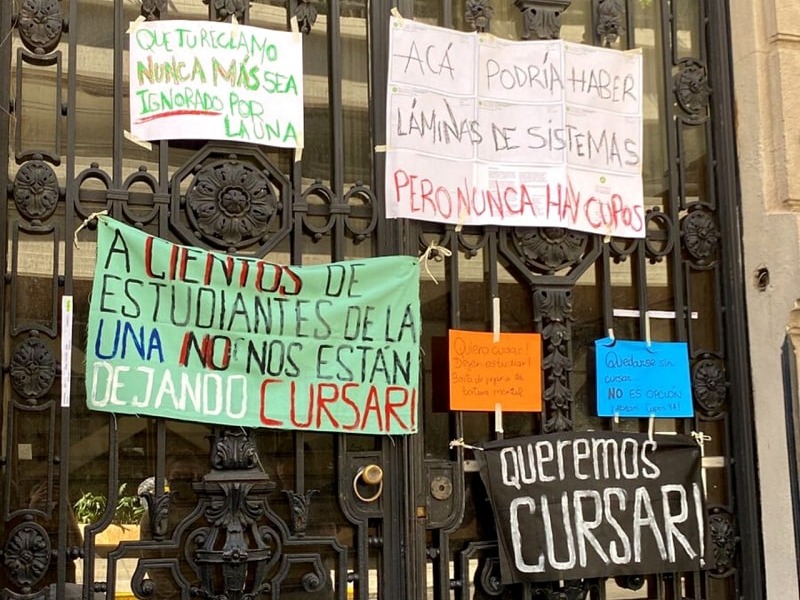 QUE TU RECLAMO
NUNCA MÁS SEA
IGNORADO POR
LA UNA
ACÁ PODRÍA HABER
LÁMINAS DE SISTEMAS
PERO NUNCA HAY CUPOS
A CIENTOS DE
ESTUDIANTES DE LA
UNA NO NOS ESTÁN
DEJANDO CURSAR!
Quiero cursar!
Dejen estudiar!
Quedarse sin
cursar
NO ES OPCIÓN
Queremos
CURSAR!